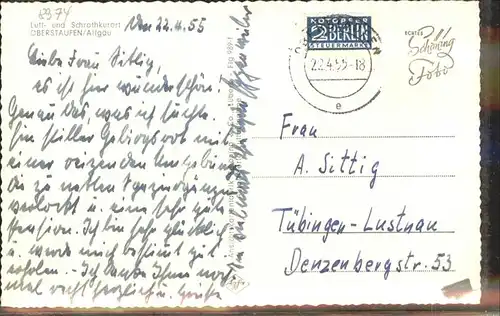 6974
Luft- und Schrothkurort
OBERSTAUFEN/Allgäu
Den 22.4.55
Liebe Frau Sittig,
es ist hier wunderschön.
Genau das, was ich suchte.
Ein stiller Gebirgsort mit
einer reizenden Umgebung
die zu netten Spaziergängen
verlockt u. eine sehr gute
Pension. Ich bin sehr glücklich
u. werde mich bestimmt gut
erholen. - Ich danke Ihnen noch
mal recht herzlich u. grüße
NOTOPFER
2 BERLIN
STEUERMARKE
22.4.55-18
e
ECHTES
Schöning
Foto
Frau
A. Sittig
Tübingen-Lustnau
Denzenbergstr. 53